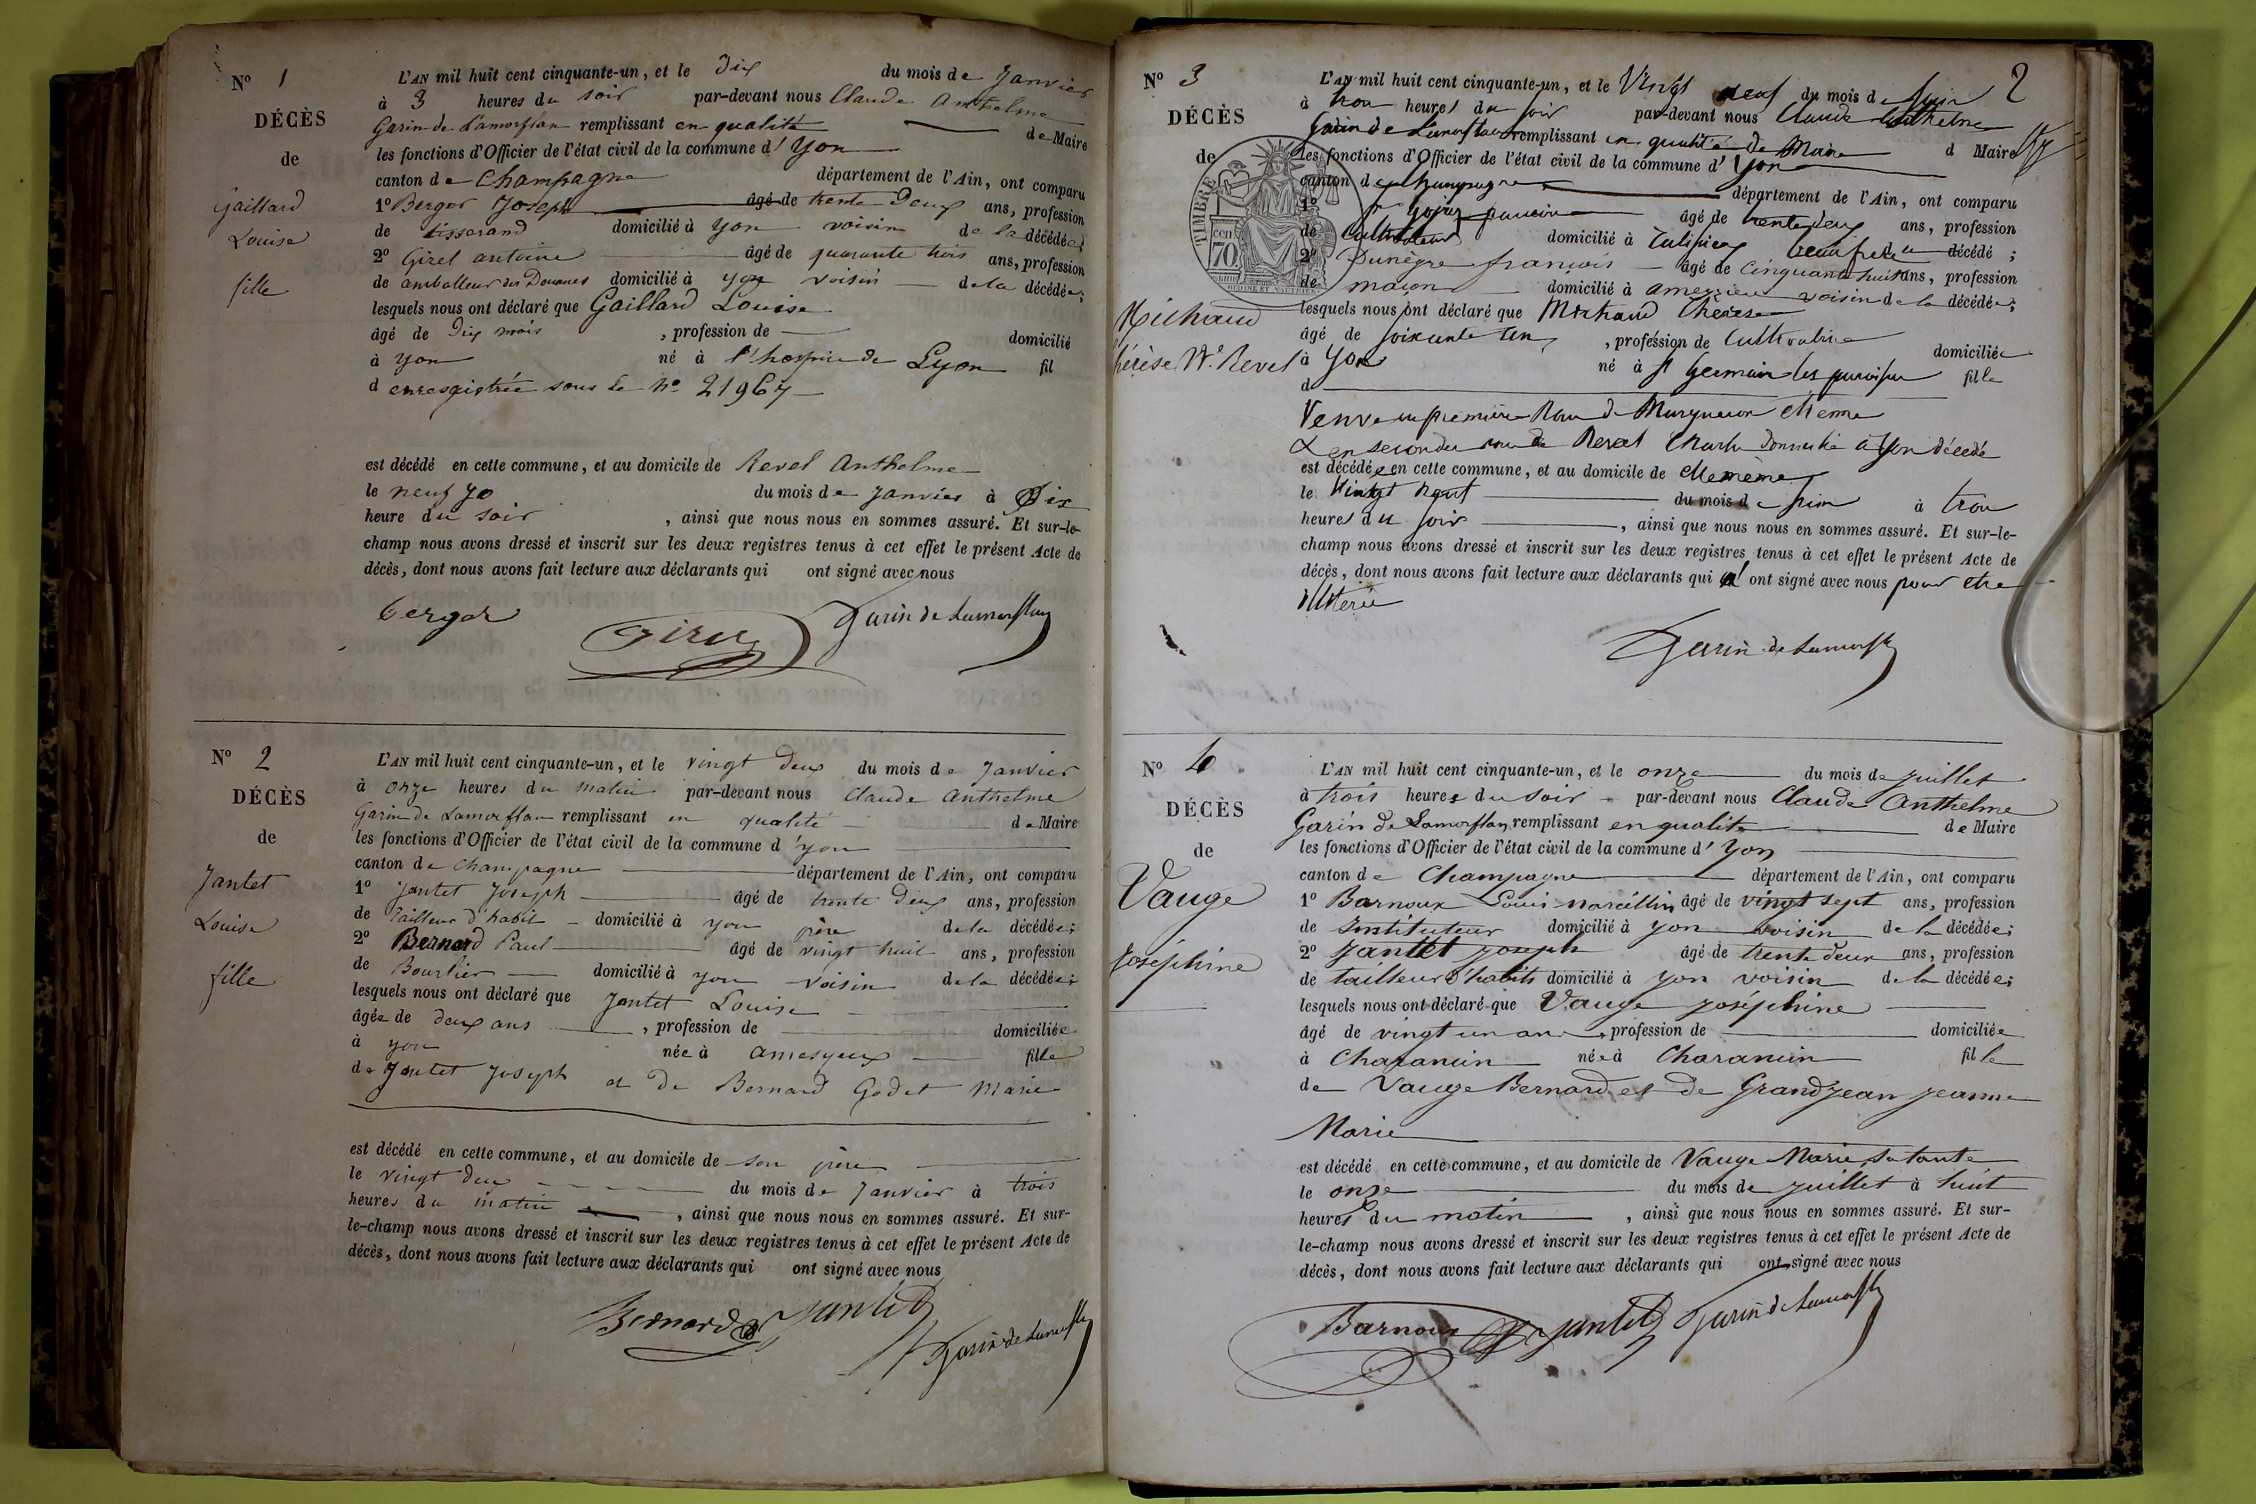 N° 1
DÉCÈS
de
Gaillard
Louise
fille
L'AN mil huit cent cinquante-un, et le Dix du mois de Janvier
à 3 heures du soir par-devant nous Claude Anthelme
Garin de Lamorflan remplissant en qualité de Maire
les fonctions d'Officier de l'état civil de la commune d'Yon
canton de Champagne département de l'Ain, ont comparu
1° Berger Joseph âgé de trente Deux ans, profession
de tisserand domicilié à Yon voisin de la décédée;
2° Girel antoine âgé de quarante trois ans, profession
de emballeur des Douanes domicilié à yon voisin de la décédée;
lesquels nous ont déclaré que Gaillard Louise
âgé de Dix mois, profession de domicilié
à yon né à l'hospice de Lyon fil
d enresgistrée sous le N° 21967
est décédé en cette commune, et au domicile de Revel Anthelme
le neuf du mois de Janvier à Dix
heure du soir, ainsi que nous nous en sommes assuré. Et sur-le-
champ nous avons dressé et inscrit sur les deux registres tenus à cet effet le présent Acte de
décès, dont nous avons fait lecture aux déclarants qui ont signé avec nous
berger Girel Garin de Lamorflan
N° 2
DÉCÈS
de
Jantet
Louise
fille
L'AN mil huit cent cinquante-un, et le vingt deux du mois de Janvier
à onze heures du matin par-devant nous Claude Anthelme
Garin de Lamorflan remplissant en qualité de Maire
les fonctions d'Officier de l'état civil de la commune d'yon
canton de Champagne département de l'Ain, ont comparu
1° Jantet Joseph âgé de trente Deux ans, profession
de Tailleur d'habit domicilié à yon père de la décédée;
2° Bernard Paul âgé de vingt huit ans, profession
de Bourlier domicilié à yon voisin de la décédée;
lesquels nous ont déclaré que Jantet Louise
âgée de deux ans, profession de domiciliée
à yon née à ameyzieu fille
de Jantet Joseph et De Bernard Godet Marie
est décédé en cette commune, et au domicile de son père
le vingt deux du mois de Janvier à trois
heures du matin, ainsi que nous nous en sommes assuré. Et sur-
le-champ nous avons dressé et inscrit sur les deux registres tenus à cet effet le présent Acte de
décès, dont nous avons fait lecture aux déclarants qui ont signé avec nous
Bernard Jantet Garin de Lamorflan
2
N° 3
DÉCÈS
de
Michaud
Thérèse Ve Revel
TIMBRE
70 cen
L'AN mil huit cent cinquante-un, et le Vingt neuf du mois de Juin
à trois heures du soir par-devant nous Claude Anthelme
Garin de Lamorflan remplissant en qualité de Maire d Maire
les fonctions d'Officier de l'état civil de la commune d'Yon
canton de Champagne département de l'Ain, ont comparu
1° âgé de trente deux ans, profession
de Cultivateur domicilié à Talissieu beau frère du décédé;
2° francois âgé de Cinquante huit ans, profession
de maçon domicilié à ameyzieu voisin de la décédée;
lesquels nous ont déclaré que Michaud Thérèse
âgé de soixante un, profession de Cultivatrice domiciliée
à Yon né à St Germain les paroisses fille
d
Veuve en première Noce de Murgueron Etienne
& en secondes noce de Revel Charles domicilié a Yon décédé
est décédée en cette commune, et au domicile de Elle même
le Vingt neuf du mois de Juin à trois
heures du soir, ainsi que nous nous en sommes assuré. Et sur-le-
champ nous avons dressé et inscrit sur les deux registres tenus à cet effet le présent Acte de
décès, dont nous avons fait lecture aux déclarants qui n' ont signé avec nous pour être
illiterré
Garin de Lamorfl
N° 4
DÉCÈS
de
Vauge
Joséphine
L'AN mil huit cent cinquante-un, et le onze du mois de juillet
à trois heures du soir par-devant nous Claude Anthelme
Garin de Lamorflan remplissant en qualité de Maire
les fonctions d'Officier de l'état civil de la commune d'Yon
canton de Champagne département de l'Ain, ont comparu
1° Barnoux Louis marcellin âgé de vingt sept ans, profession
de Instituteur domicilié à yon voisin de la décédée;
2° Jantet Joseph âgé de trente deux ans, profession
de tailleur d'habits domicilié à yon voisin de la décédée;
lesquels nous ont déclaré que Vauge joséphine
âgé de vingt un ans, profession de domiciliée
à Charancin née à Charancin fille
de Vauge Bernard et de Grandjean jeanne
Marie
est décédé en cette commune, et au domicile de Vauge Marie, sa tante
le onze du mois de juillet à huit
heures du matin, ainsi que nous nous en sommes assuré. Et sur-
le-champ nous avons dressé et inscrit sur les deux registres tenus à cet effet le présent Acte de
décès, dont nous avons fait lecture aux déclarants qui ont signé avec nous
Barnoux Jantet Garin de Lamorfl